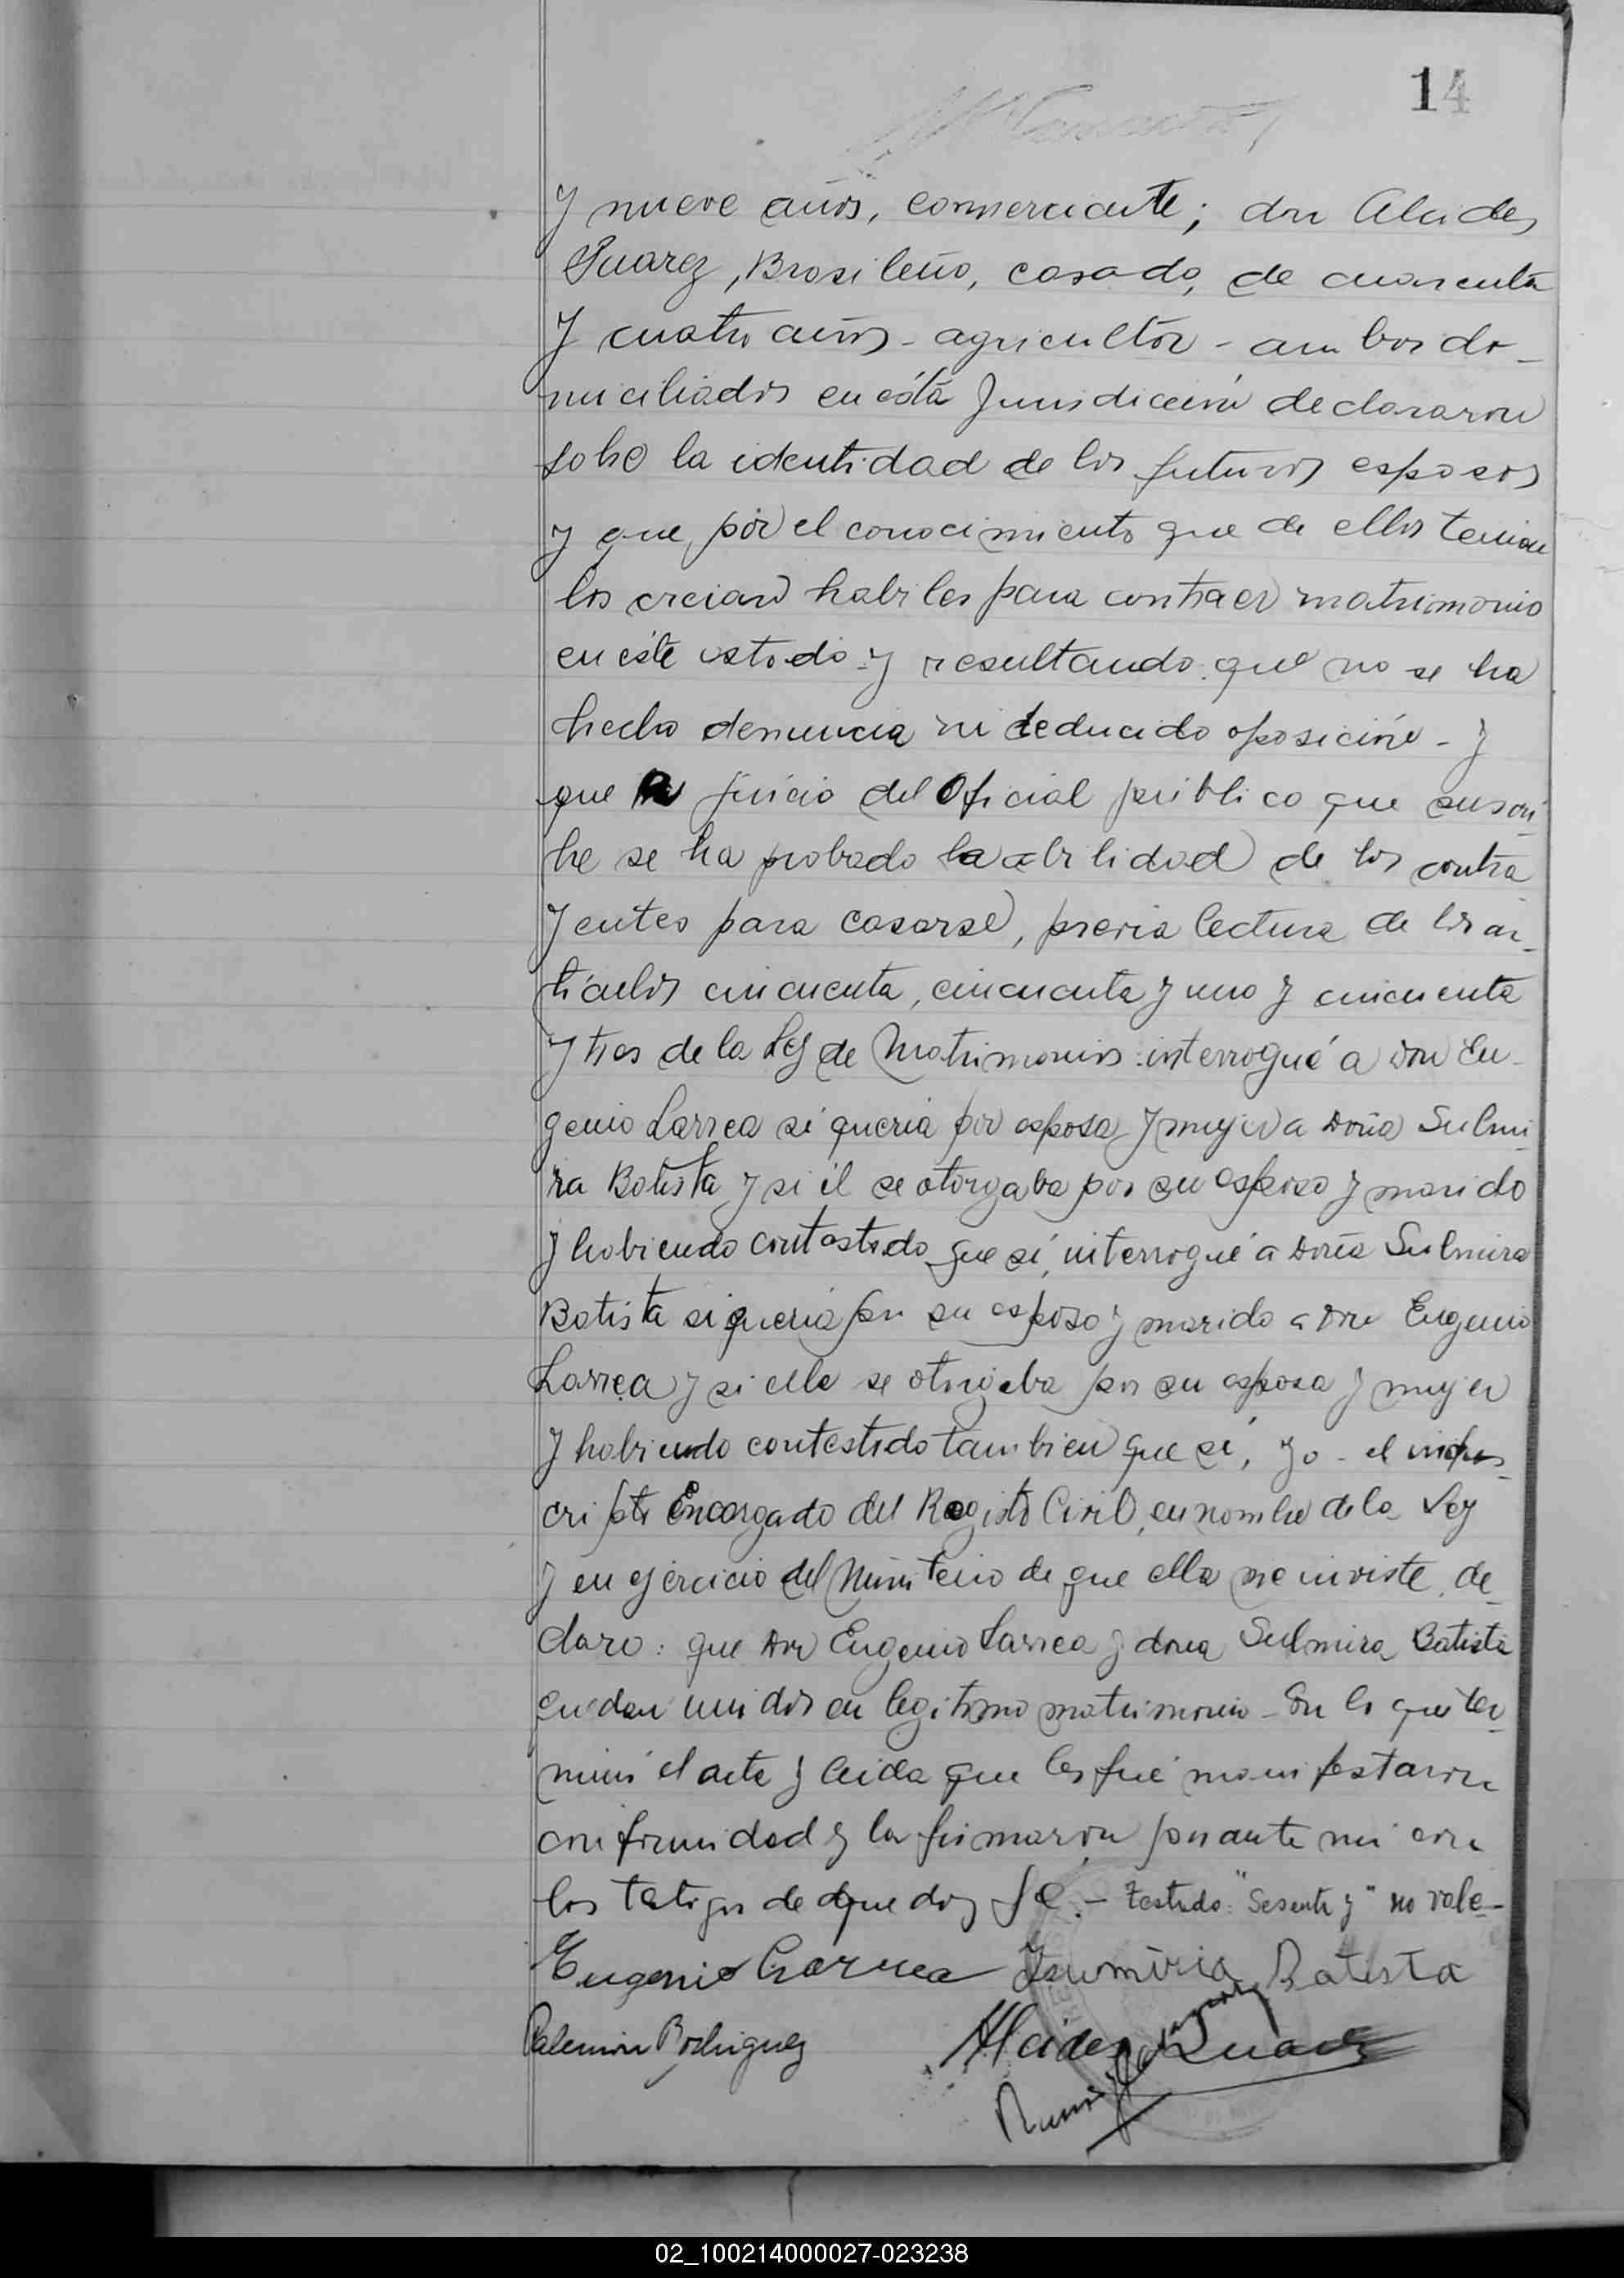 14
y nueve años, comerciante; don Alcides
Suarez, Brasileño, casado, de cuarenta
y cuatro años - agricultor - ambos do-
miciliados en ésta Jurisdiccion declararon
sobre la identidad de los futuros esposos
y que por el conocimiento que de ellos tenian
los creian habiles para contraer matrimonio
en éste estado y resultando: que no se ha
hecho denuncia ni deducido oposición - y
que a juicio del Oficial público que suscri-
be se ha probado la abilidad de los contra
yentes para casarse, previa lectura de los ar-
ticulos cincuenta, cincuenta y uno y cincuenta
y tres de la Ley de Matrimonios: interrogué a Don Eu-
genio Larrea si queria por esposa y mujer a Doña Sulmi-
ra Batista y si él se otorgaba por su esposo y marido
y habiendo contestado que sí, interrogué a Doña Sulmira
Batista si queria por su esposo y marido a Don Eugenio
Larrea y si ella se otorgaba por su esposa y mujer
y habiendo contestado tambien que sí, yo - el infras-
cripto Encargado del Registro Civil, en nombre de la Ley
y en ejercicio del Ministerio de que ella me inviste, de-
claro: que Don Eugenio Larrea y doña Sulmira Batista
quedan unidos en legitimo matrimonio - Con lo que ter-
minó el acto y leida que les fué manifestaron
conformidad y la firmaron por ante mi con
los testigos de que doy fé. - Testado: "Sesenta y" no vale -
Eugenio Larrea Batista
Palemon Rodriguez Alcides Suarez
02_100214000027-023238